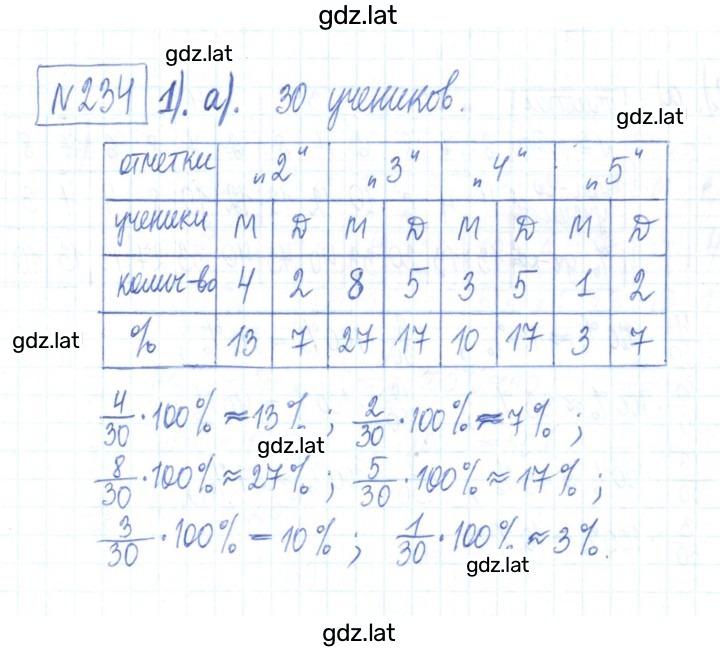 gdz.lat
gdz.lat
№234 1). а). 30 учеников.
gdz.lat
отметки „2“ „3“ „4“ „5“
ученики М Д М Д М Д М Д
колич-во 4 2 8 5 3 5 1 2
gdz.lat
% 13 7 27 17 10 17 3 7
4/30 · 100% ≈ 13% ; 2/30 · 100% ≈ 7% ;
gdz.lat
8/30 · 100% ≈ 27% ; 5/30 · 100% ≈ 17% ;
3/30 · 100% = 10% ; 1/30 · 100% ≈ 3%.
gdz.lat
gdz.lat